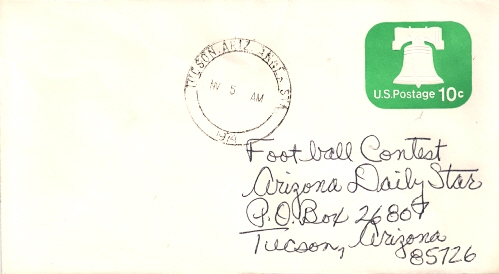 TUCSON, ARIZ.
NV 5 AM
U.S. Postage 10c
Football Contest
Arizona Daily Star
P.O. Box 26807
Tucson, Arizona
85726